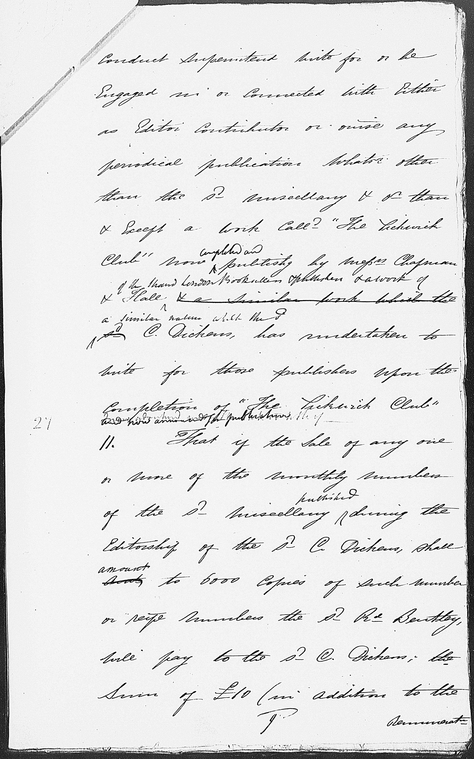 Conduct superintend write for or be
Engaged in or Connected with Either
as Editor Contributor or oṁse any
periodical publication whatsr. other
than the sd. miscellany & or than
& Except a work calld. "The Pickwick
Club" now completed and publishg by Messrs Chapman
of the Strand London Booksellers & publishers & a work of
& Hall & a similar work which the
a similar nature which the sd
sd. C. Dickens, has undertaken to
write for those publishers upon the
Completion of "The Pickwick Club"
and now announced for publication
11. That if the Sale of any one
or more of the monthly numbers
of the sd. miscellany published during the
Editorship of the sd. C. Dickens, shall
amount
to 6000 Copies of such number
or respe numbers the sd. Rd. Bentley,
will pay to the sd. C. Dickens; the
Sum of £10 (in addition to the
Remunerat
27